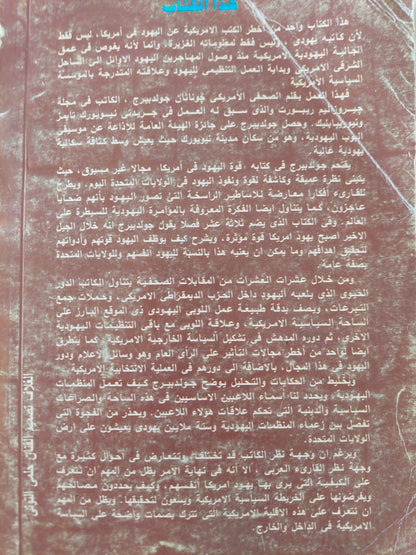 هذا الكتاب
هذا الكتاب واحد من أخطر الكتب الامريكية عن اليهود فى أمريكا، ليس فقط
لأن كاتبه يهودى وليس فقط لمعلوماته الغزيرة، وانما لأنه يغوص فى عمق
الجالية اليهودية الامريكية منذ وصول المهاجرين اليهود الاوائل الى الساحل
الشرقى الامريكى وبداية العمل التنظيمى لليهود وعلاقته المتدرجة بالمؤسسة
السياسية الأمريكية
فهذا العمل بقلم الصحفى الأمريكى جوناثان جولدبيرج، الكاتب فى مجلة
جيروزاليم ريبورت والذى سبق له العمل فى جريدتى نيويورك تايمز
ونيوريبابليك، وحصل جولدبيرج على جائزة الهيئة العامة للاذاعة عن موسيقى
البوب اليهودية، وهو من سكان مدينة نيويورك حيث يعيش وسط كثافة سكانية
يهودية عالية.
يقتحم جولدبيرج فى كتابه قوة اليهود فى أمريكا، مجالا غير مسبوق، حيث
يتبنى نظرة عميقة وكاشفة لقوة ونفوذ اليهود فى الولايات المتحدة اليوم، ويطرح
للقارىء أفكارا معارضة للأساطير الراسخة التى تصور اليهود بأنهم ضحايا
عاجزون، كما يتناول ايضا الفكرة المعروفة بالمؤامرة اليهودية للسيطرة على
العالم، وفى الكتاب الذى يضم ثلاثة عشر فصلا يقول جولدبيرج انه خلال الجيل
الاخير اصبح يهود امريكا قوة مؤثرة، ويشرح كيف يوظف اليهود قوتهم وأدواتهم
لتحقيق أهدافهم وما يمكن ان يعنيه هذا بالنسبة لليهود انفسهم وللولايات المتحدة
بصفة عامة.
ومن خلال عشرات العشرات من المقابلات الصحفية يتناول الكاتب الدور
الحيوى الذى يلعبه اليهود داخل الحزب الديمقراطى الامريكى، وحملات جمع
التبرعات، ويصف بدقة طبيعة عمل اللوبى اليهودى ذى الموقع البارز على
الساحة السياسية الامريكية، وعلاقة اللوبى مع باقى التنظيمات اليهودية
الاخرى، ثم دوره المدهش فى تشكيل السياسة الخارجية الامريكية كما يتطرق
ايضا لواحد من أخطر مجالات التأثير على الرأى العام وهو وسائل الاعلام ودور
اليهود فى هذا المجال، بالاضافة الى دورهم فى العملية الانتخابية الامريكية
وبخليط من الحكايات والتحليل يوضح جولدبيرج كيف تعمل المنظمات
اليهودية، ويحدد لنا أسماء اللاعبين الاساسيين فى هذه الساحة والصراعات
السياسية والدينية التى تحكم علاقات هؤلاء اللاعبين. ويحذر من الفجوة التى
تفصل بين زعماء المنظمات اليهودية وستة ملايين يهودى يعيشون على ارض
الولايات المتحدة.
وبرغم ان وجهة نظر الكاتب قد تختلف وتتعارض فى أحوال كثيرة مع
وجهة نظر القارىء العربى، الا أنه فى نهاية الامر يظل من المهم ان نتعرف
على الكيفية التى يرى بها يهود امريكا أنفسهم، وكيف يحددون مصالحهم
ويفرضونها على الخريطة السياسية الامريكية ويسعون لتحقيقها. ويظل من المهم
ان نتعرف على هذه الاقلية الامريكية التى تترك بصمات واضحة على السياسة
الامريكية فى الداخل والخارج.
الغلاف تصميم الفنان حلمى التونى